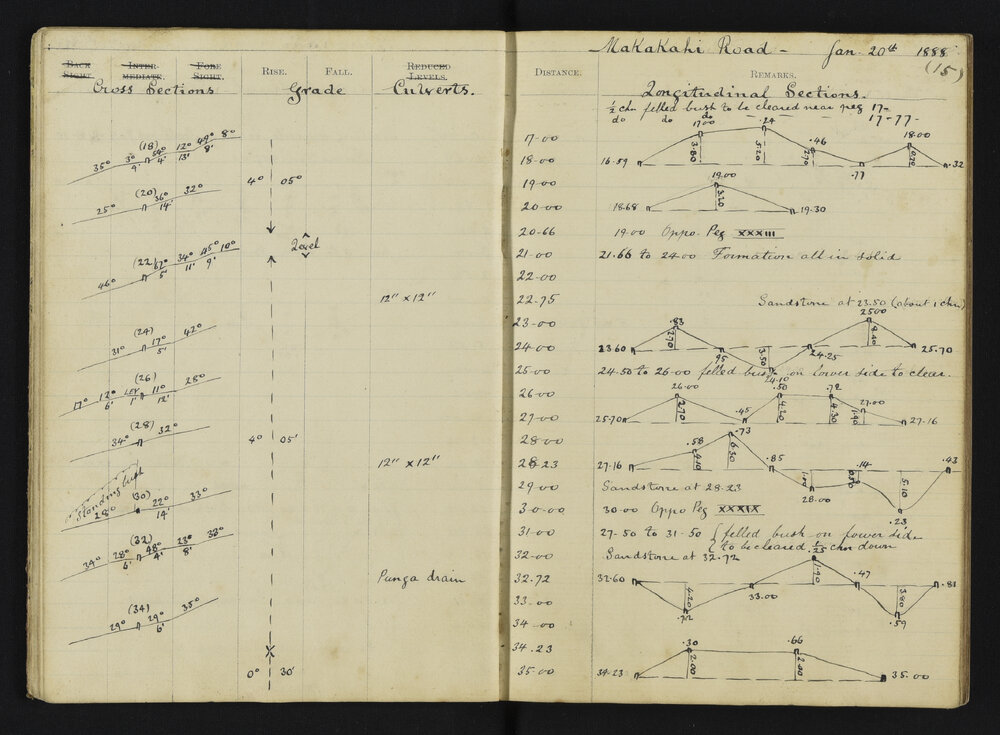 Makakahi Road - Jan. 20th 1888
(15)
BACK SIGHT. INTER-MEDIATE. FORE SIGHT. RISE. FALL. REDUCED LEVELS.
Cross Sections Grade Culverts.
(18)
35° 3° 54° 12° 49° 8°
9' 4' 13' 8'
4° 05°
(20)
25° 36° 32°
14'
Level
(22)
46° 67° 34° 45° 10°
5' 11' 9'
12" x 12"
(24)
31° 17° 42°
5'
(26)
17° 12° LEV 11° 25°
6' 1' 12'
(28)
34° 32°
4° 05'
12" x 12"
Standing bush
(30)
28° 22° 33°
14'
(32)
34° 28° 48° 23° 33°
6' 4' 8'
Punga drain
(34)
29° 29° 35°
6'
0° 30'
DISTANCE. REMARKS.
Longitudinal Sections.
½ chn felled bush to be cleared near peg 17-
do do do - - - 17-77-
17-00
18-00
19-00
20-00
20-66
21-00
22-00
22-75
23-00
24-00
25-00
26-00
27-00
28-00
28-23
29-00
30-00
31-00
32-00
32-72
33-00
34-00
34-23
35-00
16-59 17.00 3.80 .24 5.20 .46 2.70 .77 18.00 0.20 .32
18.68 19.00 3.20 19.30
19.00 Oppo. Peg XXXIII
21.66 to 24.00 Formation all in solid
Sandstone at 23.50 (about 1 chn)
23.60 .83 2.70 .95 3.50 24.10 24.25 25.00 8.40 25.70
24.50 to 26.00 felled bush on lower side to clear.
25.70 26.00 2.70 .45 .50 4.20 .72 4.30 27.00 1.90 27.16
27.16 .58 4.10 .73 6.30 .85 28.00 .14 5.10 .23 .43
Sandstone at 28.23
30.00 Oppo Peg XXXIX
27.50 to 31.50 { felled bush on lower side
to be cleared .25 chn down
Sandstone at 32.72
32.60 4.20 .72 33.00 1.90 .47 3.80 .59 .81
34-23 .30 2.00 .66 2.00 35.00